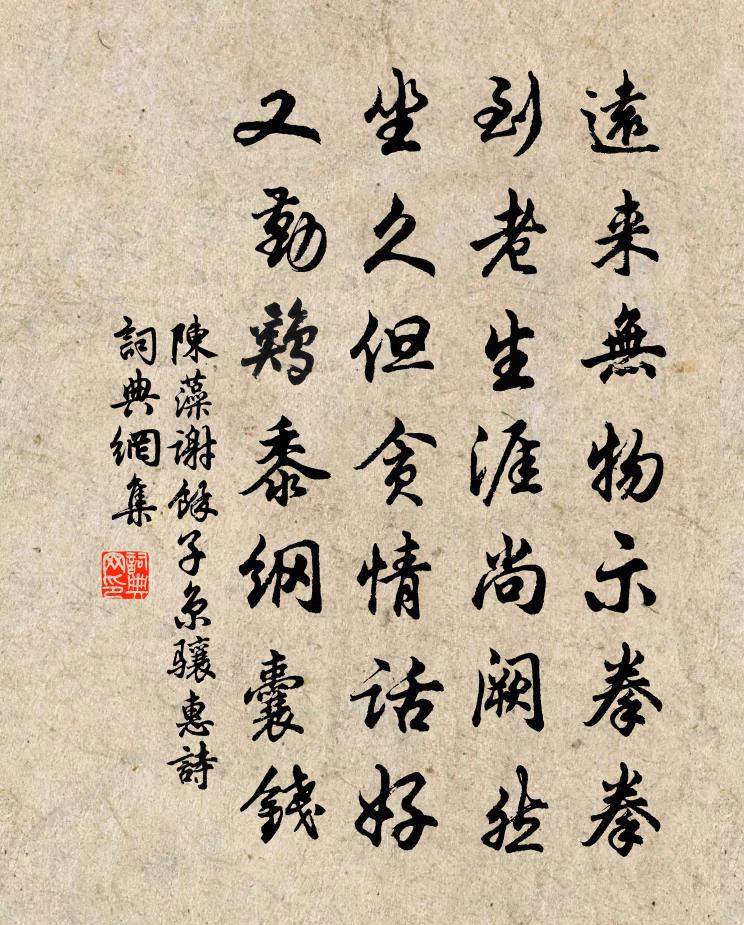 遠来無物示拳拳
到老生涯尚阙然
坐久但贪情话好
又勤鷄黍綱囊錢
陳藻谢餘子京驤惠詩
詞典網集
詞典网印